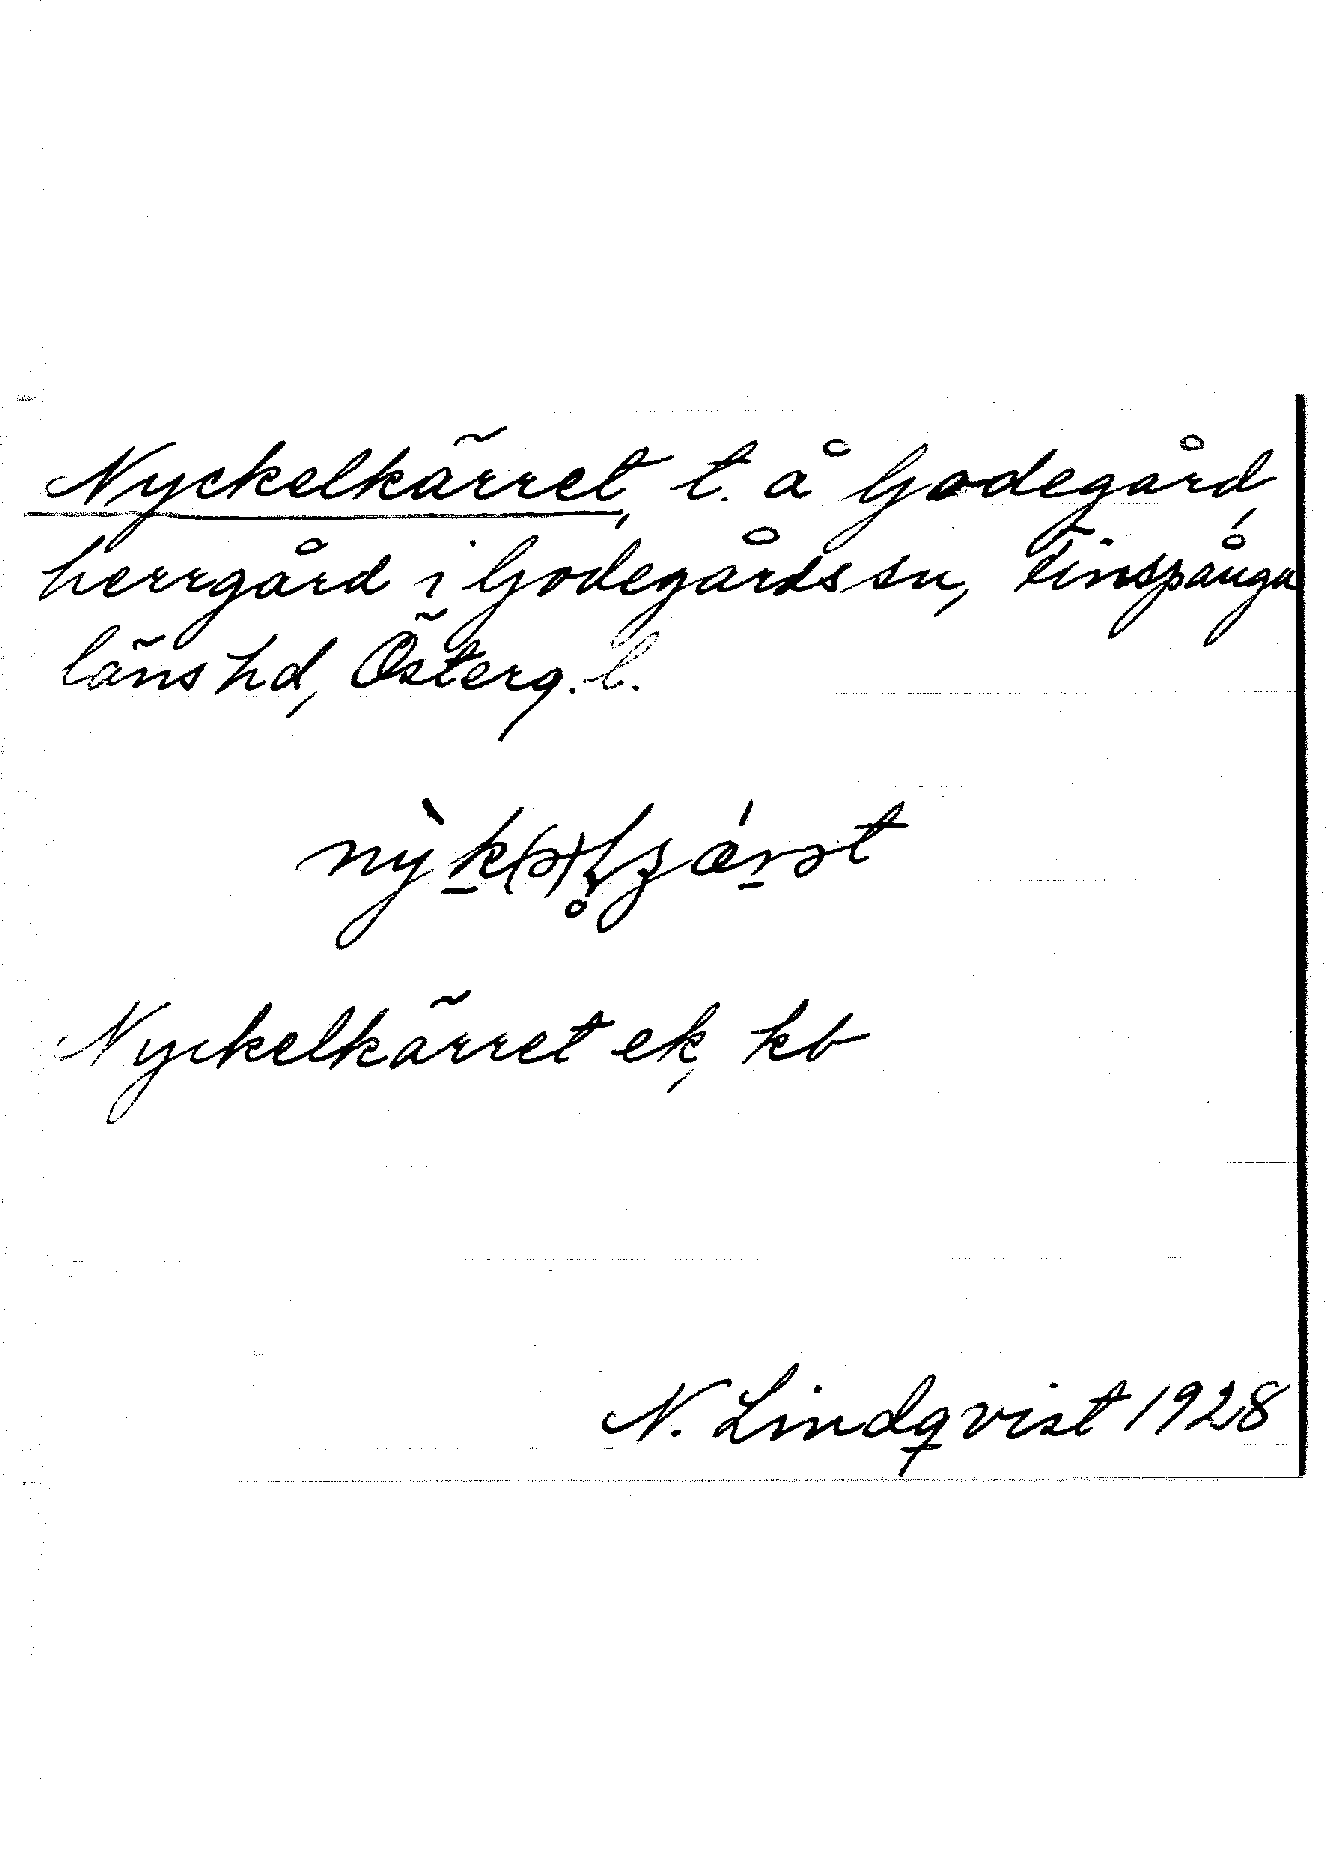 Nyckelkärret, t. å Godegård,
herrgård i Godegårds sn, Finspånga
läns hd, Österg. l.
Nyckelkärret ek, kb
N. Lindqvist 1928